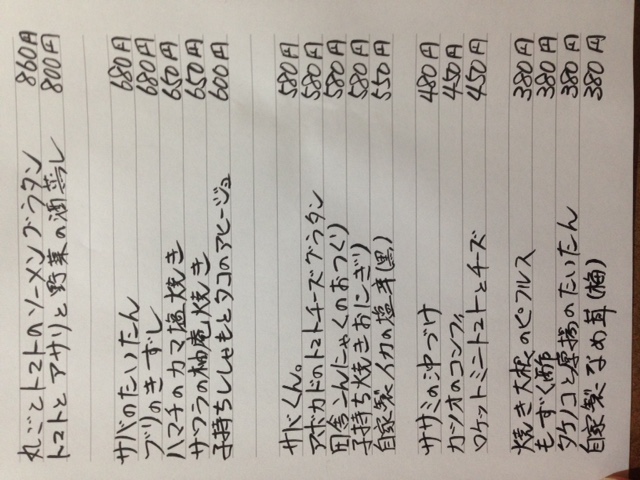 丸ごとトマトのソーメングラタン 860円
トマトとアサリと野菜の酒蒸し 800円
サバのたいたん 680円
ブリのきずし 680円
ハマチのカマ塩焼き 650円
サワラの柚庵焼き 650円
子持ちししゃもとタコのアヒージョ 600円
サバくん。 580円
アボカドのトマトチーズグラタン 580円
田舎こんにゃくのおつくり 580円
子持ち焼きおにぎり 580円
自家製イカの塩辛(黒) 550円
ササミの沖づけ 480円
カツオのコンフィ 450円
ロケットミニトマトとチーズ 450円
焼き大根のピクルス 380円
もずく酢 380円
タケノコと厚揚のたいたん 380円
自家製なめ茸(梅) 380円